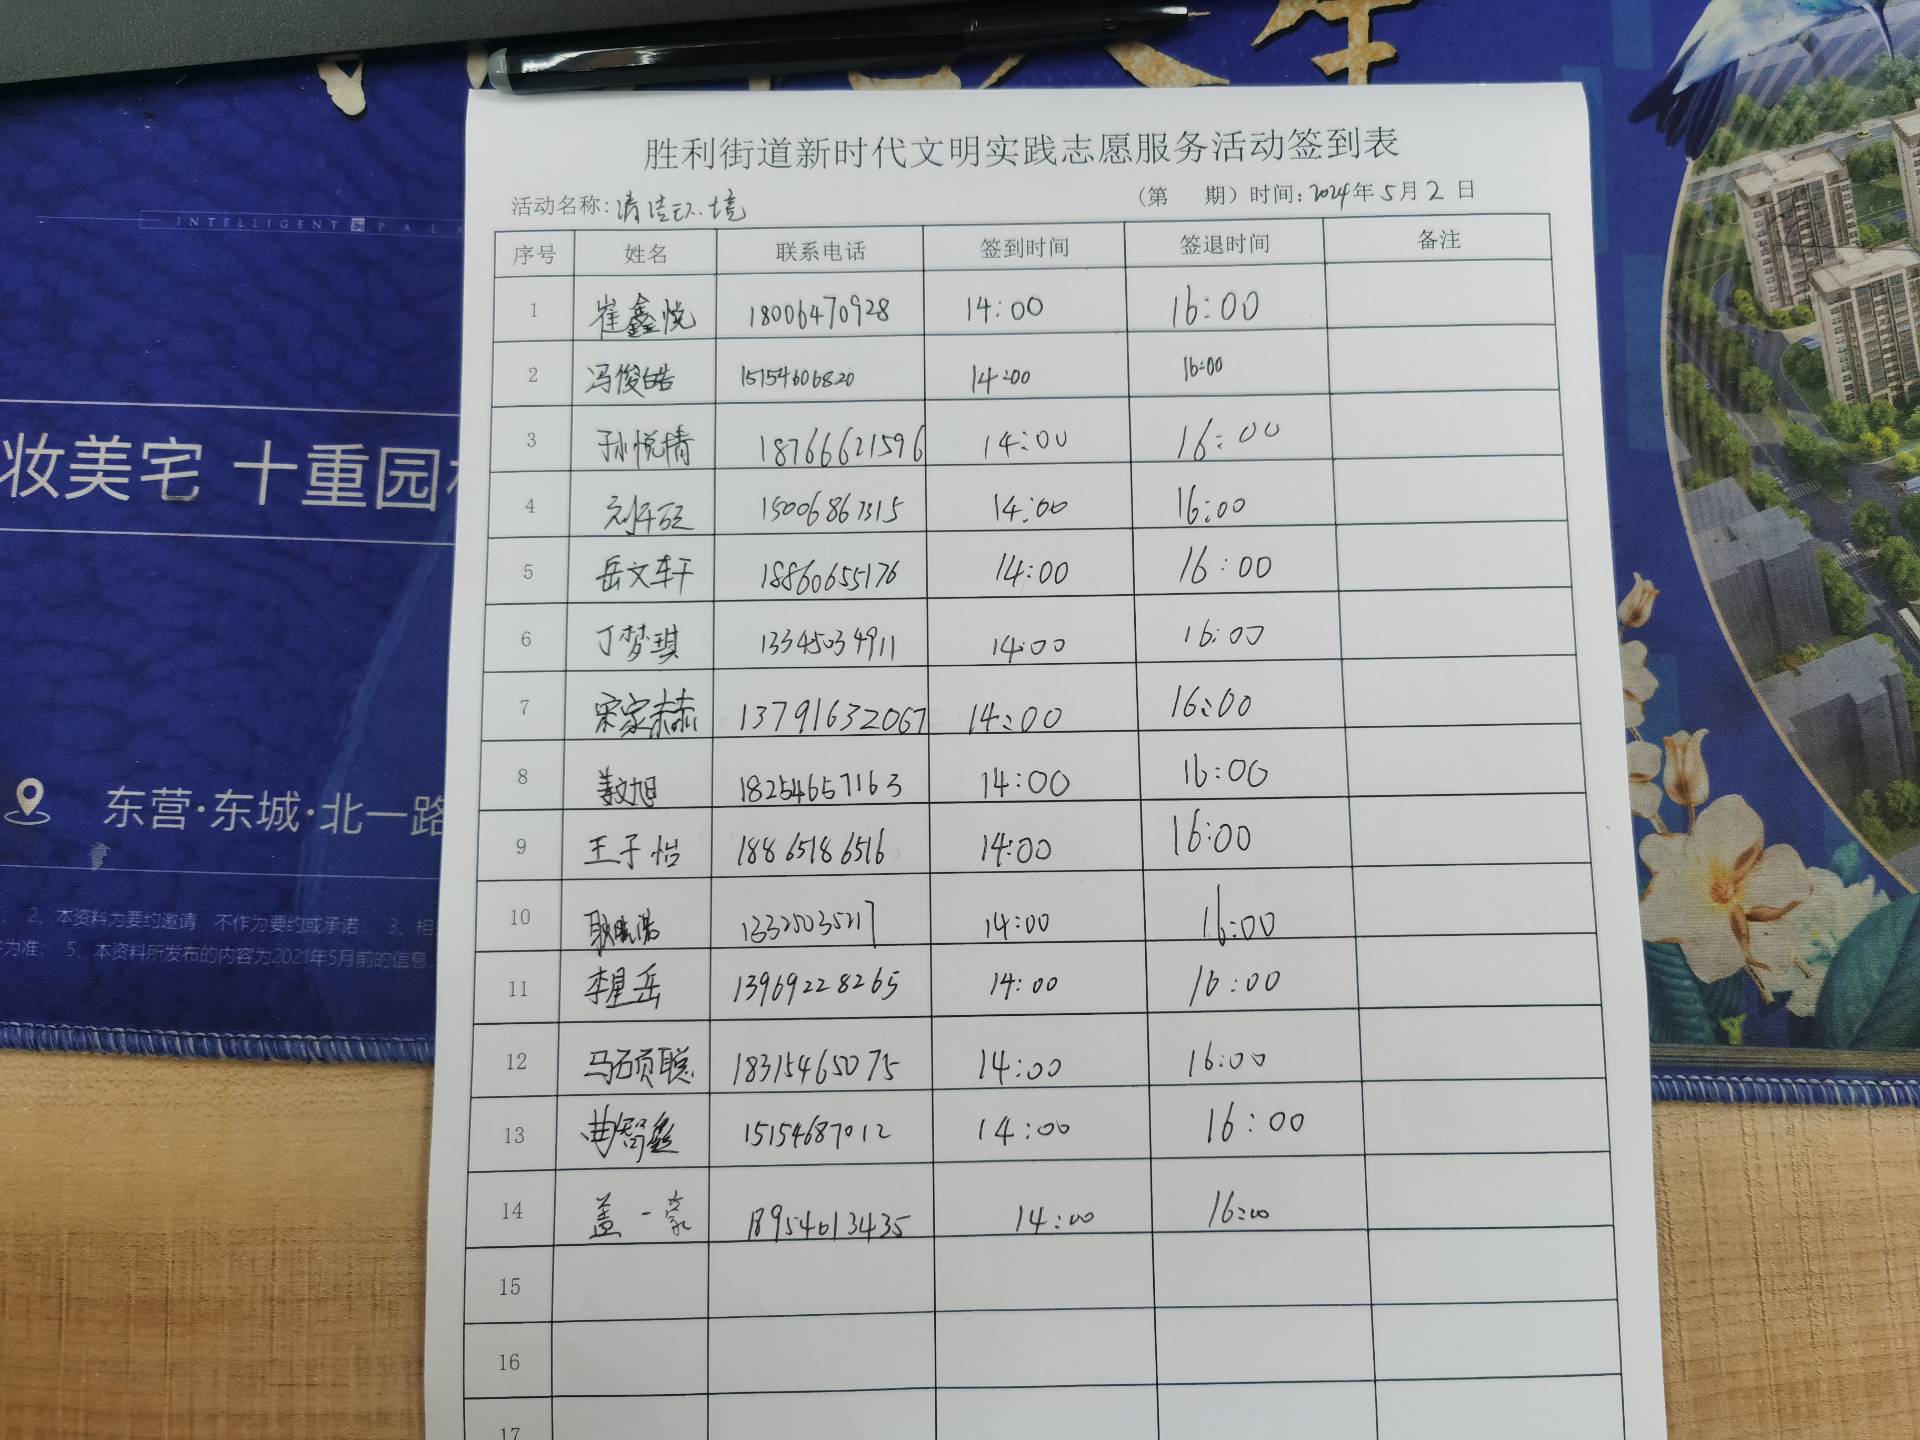 INTELLIGENT PALA
妆美宅 十重园
东营·东城·北一路
2、本资料为要约邀请 不作为要约或承诺; 3、相
为准; 5、本资料所发布的内容为2021年5月前的信息,
胜利街道新时代文明实践志愿服务活动签到表
活动名称:清洁环境 (第 期) 时间:2024年5月2日
序号 姓名 联系电话 签到时间 签退时间 备注
1 崔鑫悦 18006470928 14:00 16:00
2 冯俊皓 15154606820 14:00 16:00
3 孙悦情 18766621596 14:00 16:00
4 15006867315 14:00 16:00
5 岳文轩 18860655176 14:00 16:00
6 丁梦琪 13345034911 14:00 16:00
7 宋家赫 13791632067 14:00 16:00
8 姜旭 18254657163 14:00 16:00
9 王子怡 18865186516 14:00 16:00
10 13325035217 14:00 16:00
11 李星岳 13969228265 14:00 16:00
12 马硕聪 18315465075 14:00 16:00
13 曲智 15154687012 14:00 16:00
14 盖一豪 18954613435 14:00 16:00
15
16
17